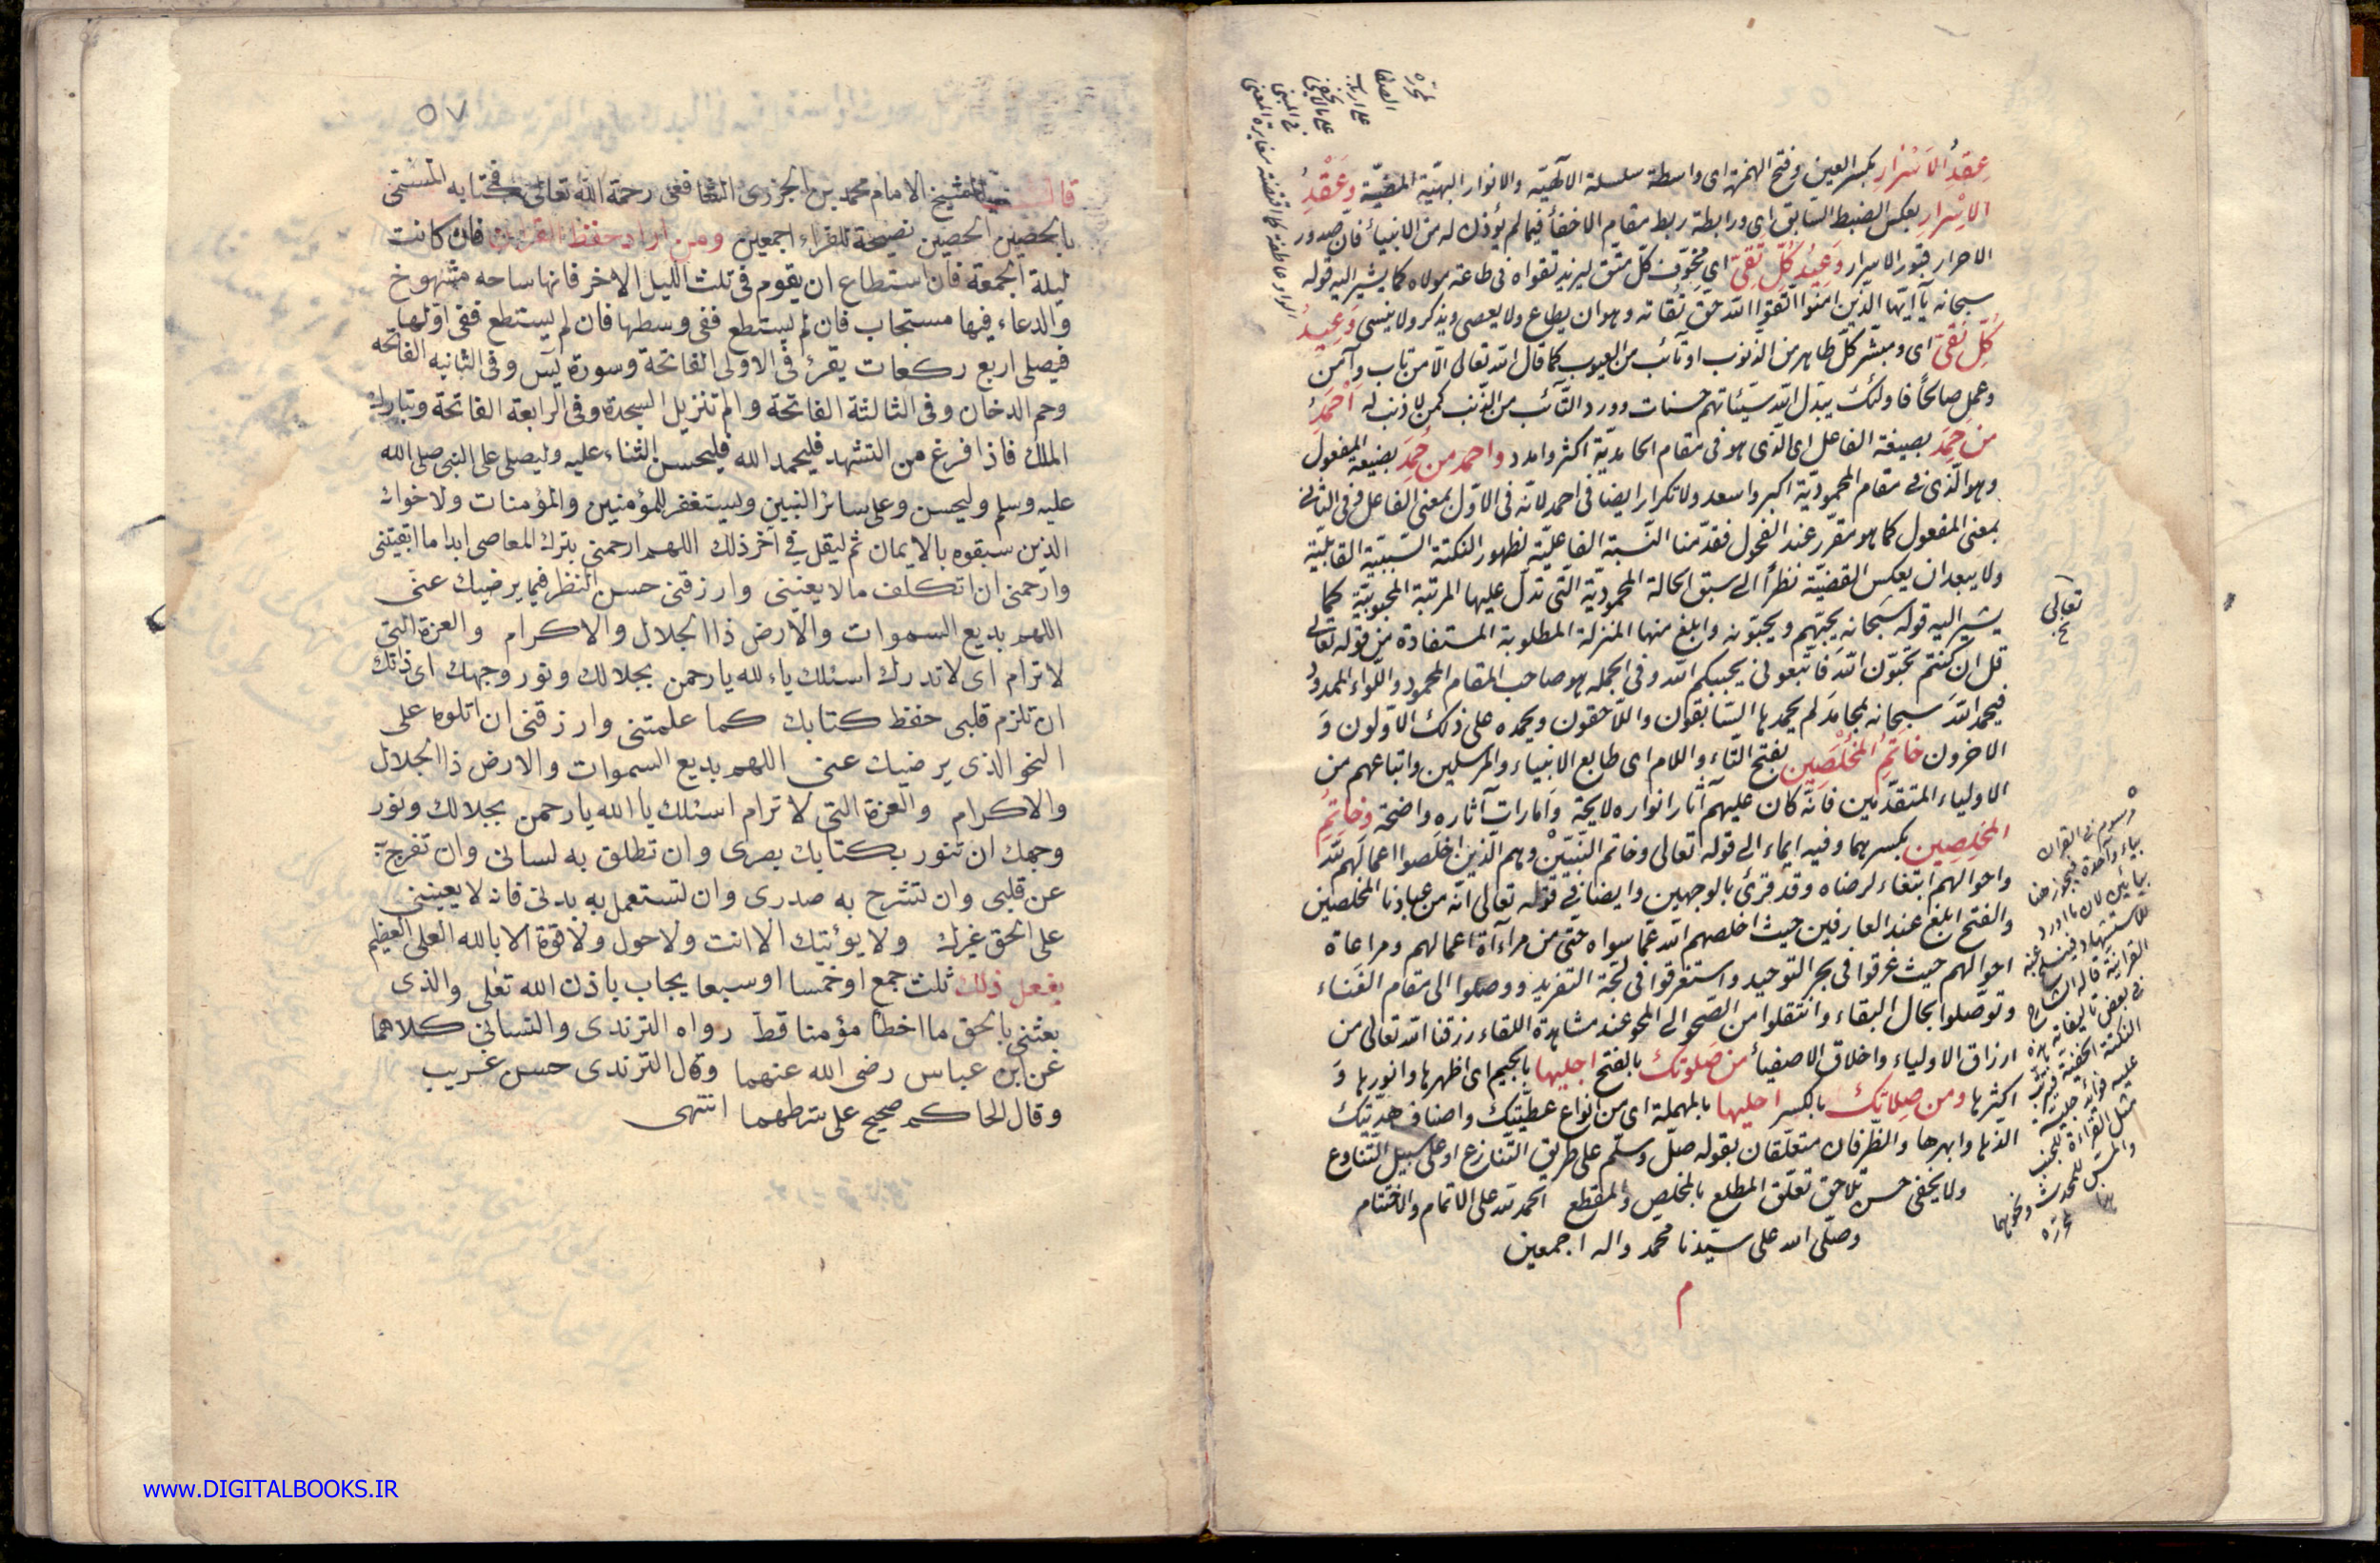 عِقدِ الاَسْرارِ بكسر العين وفتح الهمزة اى واسطة سلسلة الآلهيّه والانوار البهيّة المضيّة وَعَقْدِ
الاِسْرارِ بعكس الضبط السابق اى ورابطة ربط مقام الاخفأ فيما لم يؤذن له من الانبيأ فان صدور
الاحرار قبور الاسرار وَعِيْدِ كُلِّ تَقِيّ اى مخوّف كلّ متّق ليزيد تقواه فى طاعة مولاه كما يشير اليه قوله
سبحانه يآ ايّها الذين امنوا اتّقوا اللّه حقّ تُقاته وهو ان يطاع ولا يعصى ويذكر ولا ينسى وَعِيْدِ
كُلِّ نَقِيّ اى ومبشّر كلّ طاهر من الذنوب او تائب من العيوب كما قال الله تعالى الّا من تاب وآمن
وعمل صالحاً فاولئك يبدّل الله سيّئاتهم حسنات وورد التّآئب من الذّنب كمن لا ذنب له اَحْمَدِ
مَن حَمِدَ بصيغة الفاعل اى الّذى هو فى مقام الحامديّة اكثر وامدد واحمد من حُمِدَ بصيغة المفعول
وهو الّذى فى مقام المحموديّة اكبر واسعد ولا تكرار ايضا فى احمد لانّه فى الاوّل بمعنى الفاعل وفى الثانى
بمعنى المفعول كما هو مقرّر عند الفحول فقدّمنا النّسبة الفاعليّة لظهور النكتة السّببيّة القابليّة
ولا يبعد ان يعكس القضيّة نظراً الى سبق الحالة المحموديّة الّتى تدلّ عليها المرتبة المحبوبيّة كما
يشير اليه قوله سبحانه يحبّهم ويحبّونه وابلغ منها المنزلة المطلوبة المستفادة من قوله تعالى
قل ان كنتم تحبّون اللّه فاتّبعونى يحببكم اللّه وفى الجمله هو صاحب المقام المحمود واللّواء الممدود
فيحمد اللّه سبحانه بمحامد لم يحمد بها السّابقون واللّاحقون ويحمده على ذلك الاوّلون وَ
الاخرون خاتَمِ المُخْلَصِين بفتح التّاء واللام اى طابع الانبياء والمرسلين واتباعهم من
الاولياء المتقدّمين فانّه كان عليهم آثار انواره لايحة وامارات آثاره واضحة وخاتِمِ
المخلِصِين بكسرهما وفيه ايماء الى قوله تعالى وخاتم النّبيّين وهم الّذين اخلصوا اعمالهم للّه
واحوالهم ابتغاء لرضاه وقد قرئ بالوجهين وايضا فى قوله تعالى انّه من عبادنا المخلصين
والفتح ابلغ عند العارفين حيث اخلصهم اللّه عمّا سواه حتى من مراءاة اعمالهم ومراعاة
احوالهم حيث غرقوا فى بحر التوحيد واستغرقوا فى لجّة التفريد ووصلوا الى مقام الفناء
وتوصّلوا بحال البقاء وانتقلوا من الصّحو الى المحو عند مشاهدة اللقاء رزقنا اللّه تعالى من
ارزاق الاولياء واخلاق الاصفيأ من صَلوتِك بالفتح اجليها بالجيم اى اظهرها وانورها وَ
اكثرها ومن صِلاتِك بالكسر احليها بالمهملة اى من انواع عطيّتك واصناف هديّتك
الذها وابهرها والظّرفان متعلّقان بقوله صلّ وسلّم على طريق التّنازع او على سبيل التّناوع
ولا يخفى حسن تلاحق تعلّق المطلع بالمخلص والمقطع الحمد للّه على الاتمام والاختتام
وصلّى الله على سيّدنا محمد واله اجمعين
م
تعالى
مرسوم فى القران
بياء واحدة فيجوز هنا
القراءة قاله الشارح
فى بعض تاليفاته
٥٧
قال الشيخ الامام محمد بن الجزرى الشافعى رحمة الله تعالى فى كتابه المسمى
بالحصين الحصين نصيحة للقراء اجمعين ومن اراد حفظ القران فان كانت
ليلة الجمعة فان استطاع ان يقوم فى ثلث الليل الاخر فانها ساحه مشهوخ
والدعاء فيها مستجاب فان لم يستطع ففى وسطها فان لم يستطع ففى اولها
فيصلى اربع ركعات يقرئ فى الاولى الفاتحة وسورة يس وفى الثانيه الفاتحه
وحم الدخان وفى الثالثة الفاتحة والم تنزيل السجدة وفى الرابعة الفاتحة وتبارك
الملك فاذا فرغ من التشهد فليحمد الله فليحسن الثناء عليه وليصلى على النبى صلى الله
عليه وسلم وليحسن وعلى سائر النبين وليستغفر للمؤمنين والمؤمنات ولاخوانه
الذين سبقوه بالايمان ثم ليقل فى اخر ذلك اللهم ارحمنى بترك المعاصى ابدا ما ابقيتنى
وارحمنى ان اتكلف مالا يعنينى وارزقنى حسن النظر فيما يرضيك عنى
اللهم بديع السموات والارض ذا الجلال والاكرام والعزة التى
لا ترام اى لا تدرك اسئلك ياء لله يا رحمن بجلالك ونور وجهك اى ذاتك
ان تلزم قلبى حفظ كتابك كما علمتنى وارزقنى ان اتلوه على
النحو الذى يرضيك عنى اللهم بديع السموات والارض ذا الجلال
والاكرام والعزة التى لا ترام اسئلك يا الله يا رحمن بجلالك ونور
وجهك ان تنور بكتابك بصرى وان تطلق به لسانى وان تفرج به
عن قلبى وان تشرح به صدرى وان تستعمل به بدنى فانه لا يعيننى
على الحق غيرك ولا يوتيك الا انت ولا حول ولا قوة الا بالله العلى العظيم
يفعل ذلك ثلث جمع او خمسا او سبعا يجاب باذن الله تعلى والذى
بعثنى بالحق ما اخطأ مؤمنا قط رواه الترندى والنسائى كلاهما
عن ابن عباس رضى الله عنهما وقال الترندى حسن غريب
وقال الحاكم صحيح على شرطهما انتهى
www.DIGITALBOOKS.IR